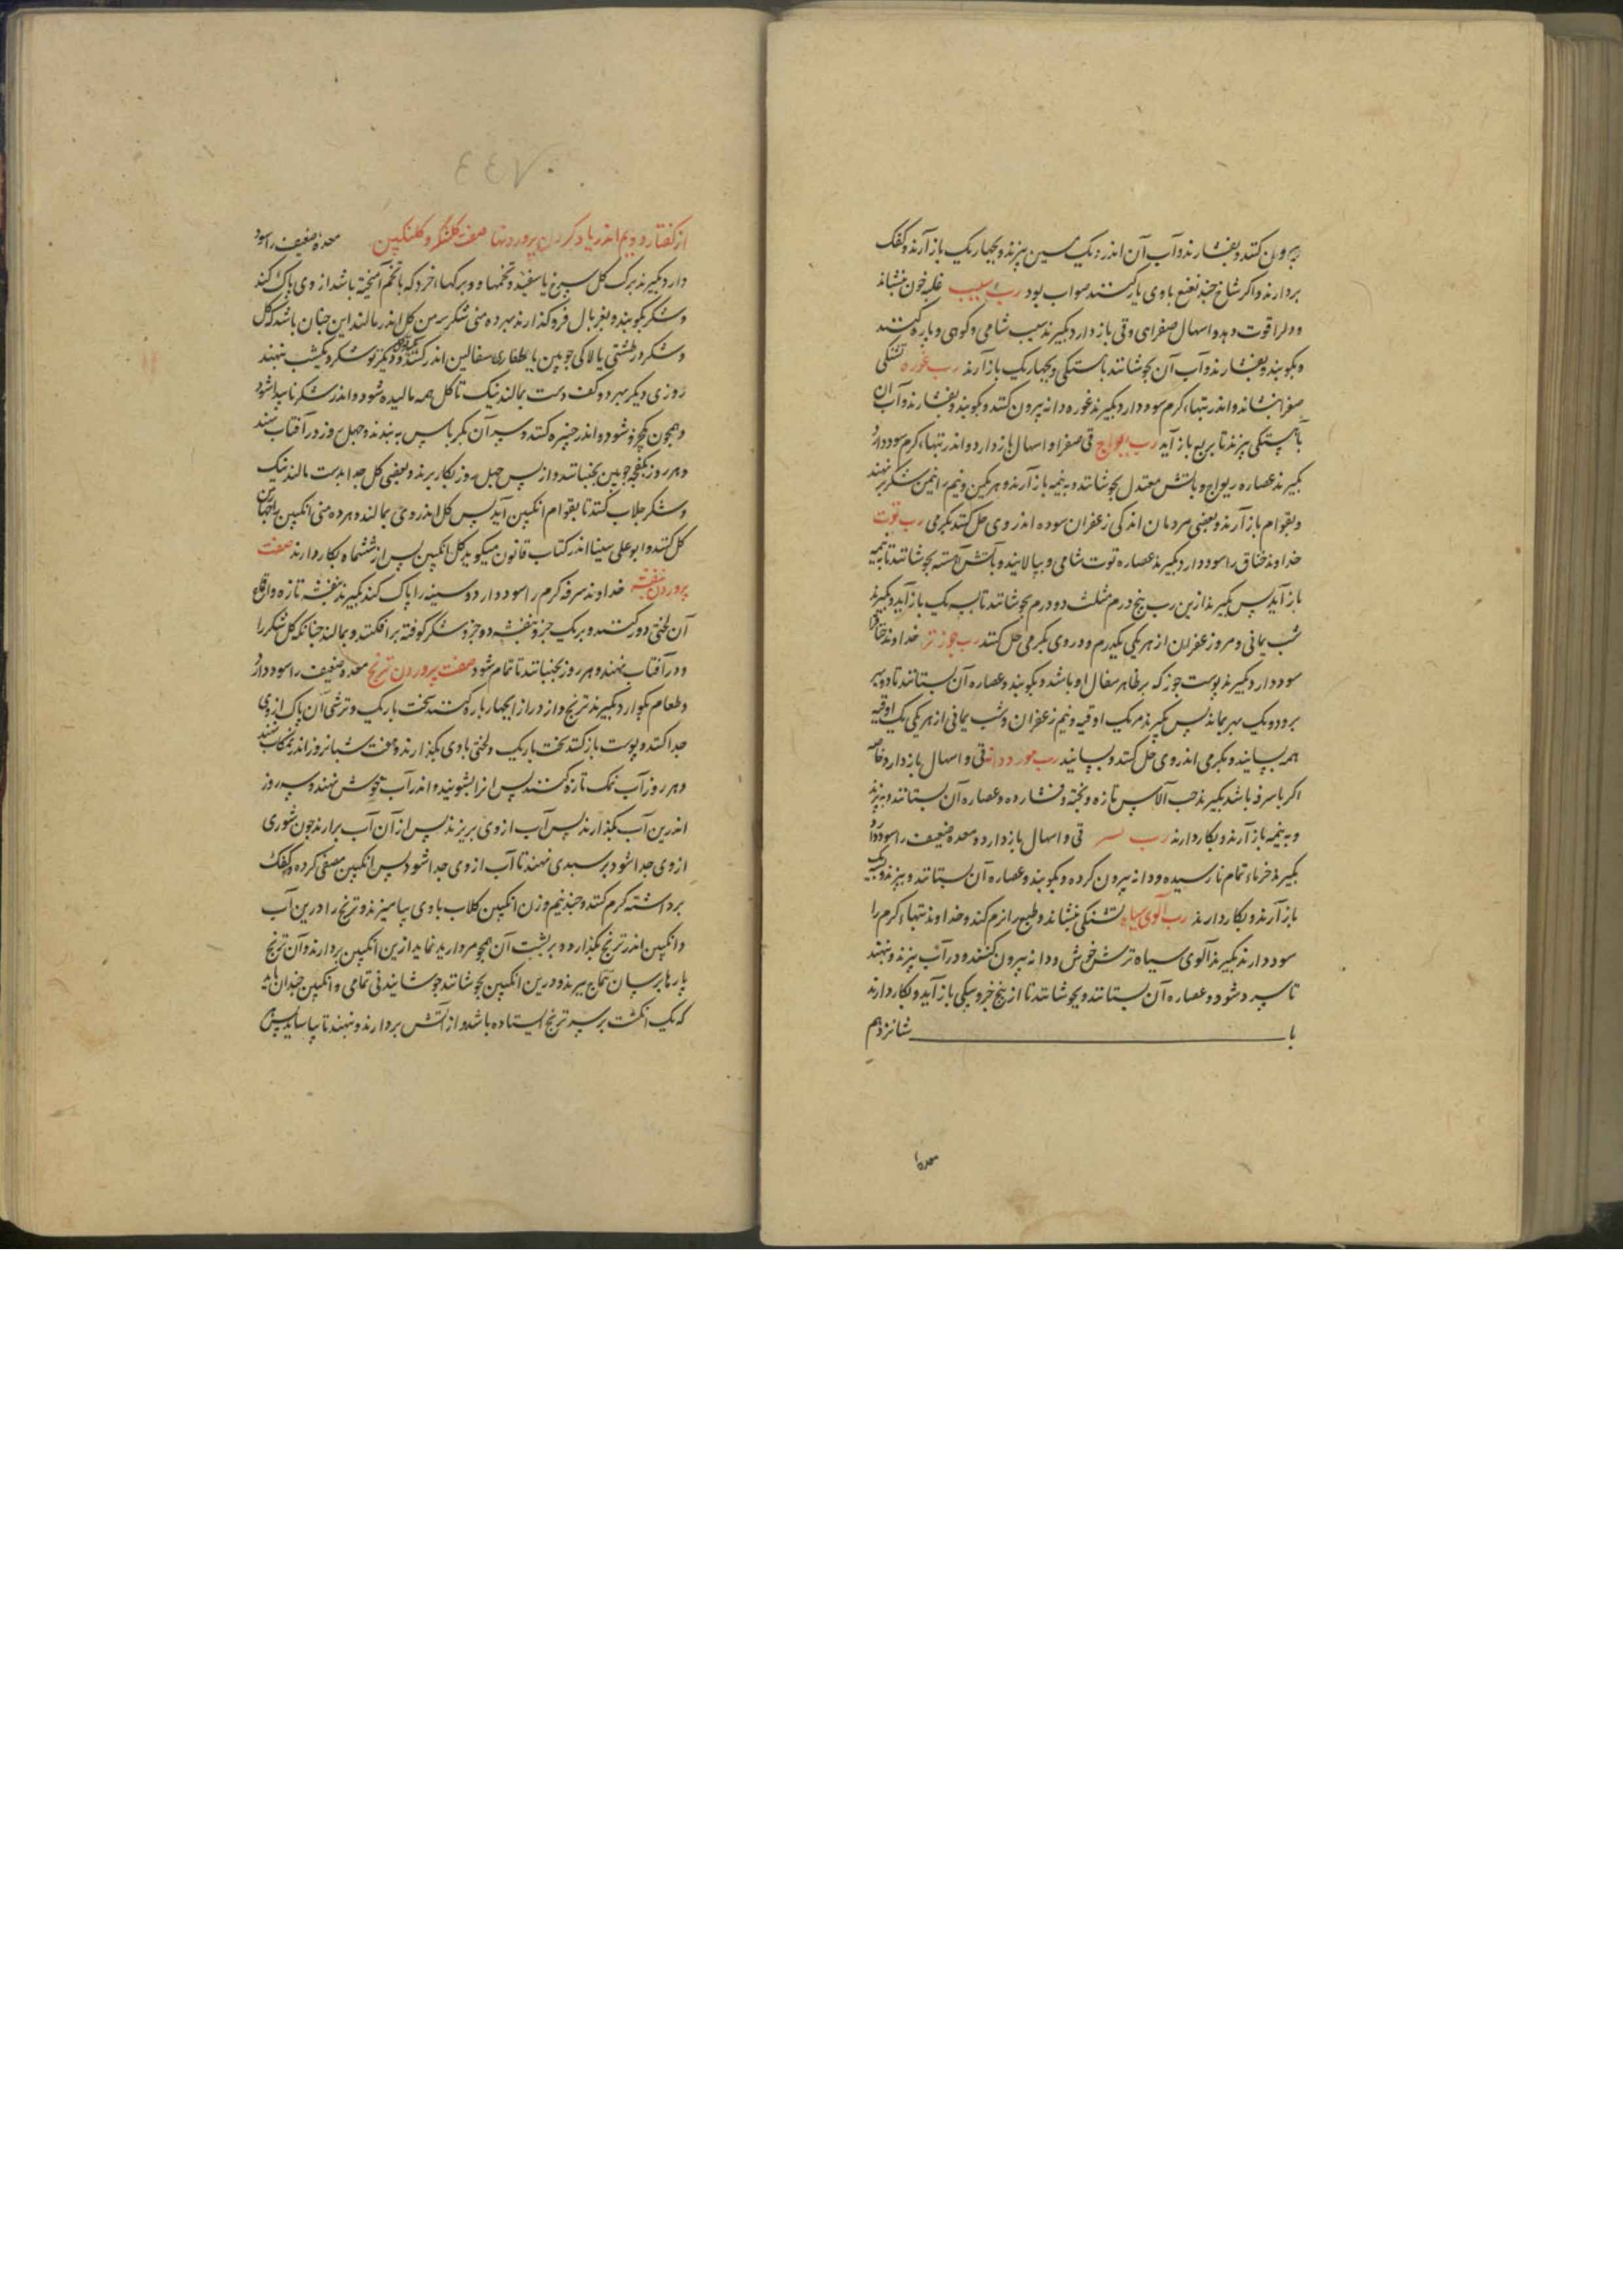 بیرون کنند و بفشارند و آب آن اندر دیک سنگین بپزند و بچهار یک باز آرند و کفک
بردارند و اگر شاخ چند نعنع با وی یار کنند صواب بود رب سیب غلبه خون بنشاند
و دل را قوت دهد و اسهال صفرایی و قی باز دارد بگیرند سیب شامی و کوهی و پاره کنند
و بکوبند و بفشارند و آب آن بجوشانند باهستکی و بچهار یک باز آرند رب غوره تشنکی
صفرا بنشاند و اندر تبهاء کرم سود دارد بگیرند غوره دانه بیرون کنند و بکوبند و بفشارند و آب آن
باهستکی بپزند تا بربع باز آید رب ریواج قی صفرا و اسهال باز دارد و اندر تبهاء کرم سود دارد
بگیرند عصاره ریواج و باتش معتدل بجوشانند و به نیمه باز آرند و هر یکمن و نیم را نیمن شکر برنهند
و بقوام باز آرند و بعضی مردمان اندکی زعفران سوده اندر وی حل کنند بکرمی رب توت
خداوند خناق را سود دارد بگیرند عصاره توت شامی و بپالایند و باتش آهسته بجوشانند تا به نیمه
باز آید پس بگیرند ازین رب پنج درم مثلث دو درم بجوشانند تا بسه یک باز آید و بگیرند
شب یمانی و مر و زعفران از هر یکی یکدرم و در وی بکرمی حل کنند رب جوز تر خداوند خناق را
سود دارد بگیرند پوست جوز که بر ظاهر سفال او باشد و بکوبند و عصاره آن بستانند تا دو بهر
برود و یک بهر بماند پس بگیرند مر یک اوقیه و نیم زعفران و شب یمانی از هر یکی یک اوقیه
همه بسایند و بکرمی اندر وی حل کنند و بسایند رب مورد دانه قی و اسهال باز دارد خاصه
اکر با سرفه باشد بگیرند حب الآس تازه و پخته و فشارده و عصاره آن بستانند و بپزند
و به نیمه باز آرند و بکار دارند رب بسر قی و اسهال باز دارد و معده ضعیف را سود دارد
بگیرند خرماء تمام نارسیده و دانه بیرون کرده و بکوبند و عصاره آن بستانند و بپزند و بسه یک
باز آرند و بکار دارند رب آلوی سیاه تشنکی بنشاند و طبع را نرم کند و خداوند تبهاء کرم را
سود دارند بگیرند آلوی سیاه ترش خوش و دانه بیرون کنند و در آب بپزند و بنهند
تا سرد شود و عصاره آن بستانند و بجوشانند تا از پنج خرو بیکی باز آید و بکار دارند
با شانزدهم
معده
از گفتار دویم اندر یاد کردن پروردنها صفت کلشکر و کلنکبین معده ضعیف را سود
دارد بگیرند برک کل سرخ یا سفید و تخمها و برکها خرد که با تخم آمیخته باشد از وی پاک کنند
و شکر بکوبند و بغربال فرو گذارند بهر ده منی شکر سه من کل اندر مالند این چنان باشد که کل
و شکر در طشتی یا لاکی چوبین یا بطغاری سفالین اندر کنند و دیکر تو شکر و یکشب بنهند
روزی دیکر بهر دو کف دست بمالند نیک تا کل همه مالیده شود و اندر شکر ناپیدا شود
و همچون خمیر شود و اندر خنبره کنند و سر آن بکرباس به بندند و چهل روز در آفتاب نهند
و هر روز بکفچه چوبین بجنبانند و از پس چهل روز بکار برند و بعضی کل جدا بدست مالند نیک
و شکر جلاب کنند تا بقوام انکبین آید پس کل اندر وی بمالند و هر ده منی انکبین را چهار من
کل کنند و ابو علی سینا اندر کتاب قانون میگوید کل انکبین پس از ششماه بکار دارند صفت
پروردن بنفشه خداوند سرفه کرم را سود دارد و سینه را پاک کند بگیرند بنفشه تازه و اقماع
آن لختی دور کنند و بر یک جزو بنفشه دو جزو شکر کوفته برافکنند و بمالند چنانکه کل شکر را
و در آفتاب بنهند و هر روز بجنبانند تا تمام شود صفت پروردن ترنج معده ضعیف را سود دارد
و طعام بکوارد بگیرند ترنج و از درازا بچهار پاره کنند سخت باریک و ترشی آن پاک از وی
جدا کنند و پوست باز کنند سخت باریک و لختی با وی بگذارند و هفت شبانروز اندر نمکاب نهند
و هر روز آب نمک تازه کنند پس آنرا بشویند و اندر آب خوش نهند و سه روز
اندرین آب بگذارند پس آب از وی بریزند پس از آن آب برارند چون شوری
از وی جدا شود بر سبدی نهند تا آب از وی جدا شود پس انکبین مصفی کرده و کفک
برداشته کرم کنند و چند نیم وزن انکبین کلاب با وی بیامیزند و ترنج را درین آب
و انکبین اندر ترنج بگذارد و بر پشت آن همچو مروارید نماید ازین انکبین بردارند و آن ترنج
پارها برسان تتماج ببرند و درین انکبین بجوشانند جوشانیدنی تمامی و انکبین چندان باید
که یک انکشت بر سر ترنج ایستاده باشد و از آتش بردارند و بنهند تا بیاساید پس